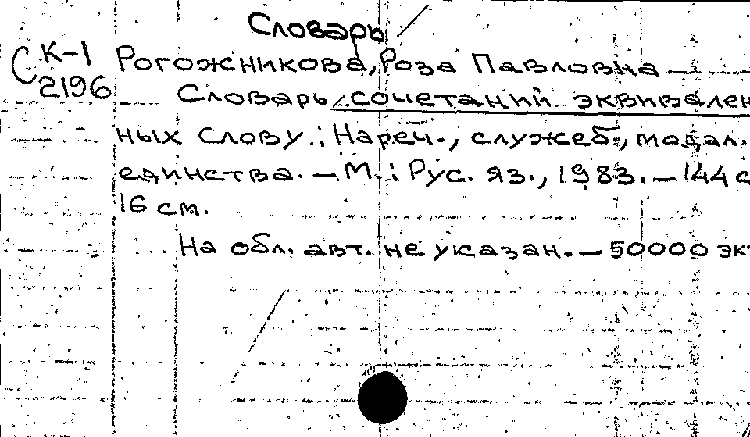 Словарь
К-1
С 2196
Рогожникова, Роза Павловна
Словарь сочетаний эквивален
ных слову : Нареч., служеб., модал.
единства. — М. : Рус. яз., 1983. — 144 с
16 см.
На обл. авт. не указан. — 50000 эк